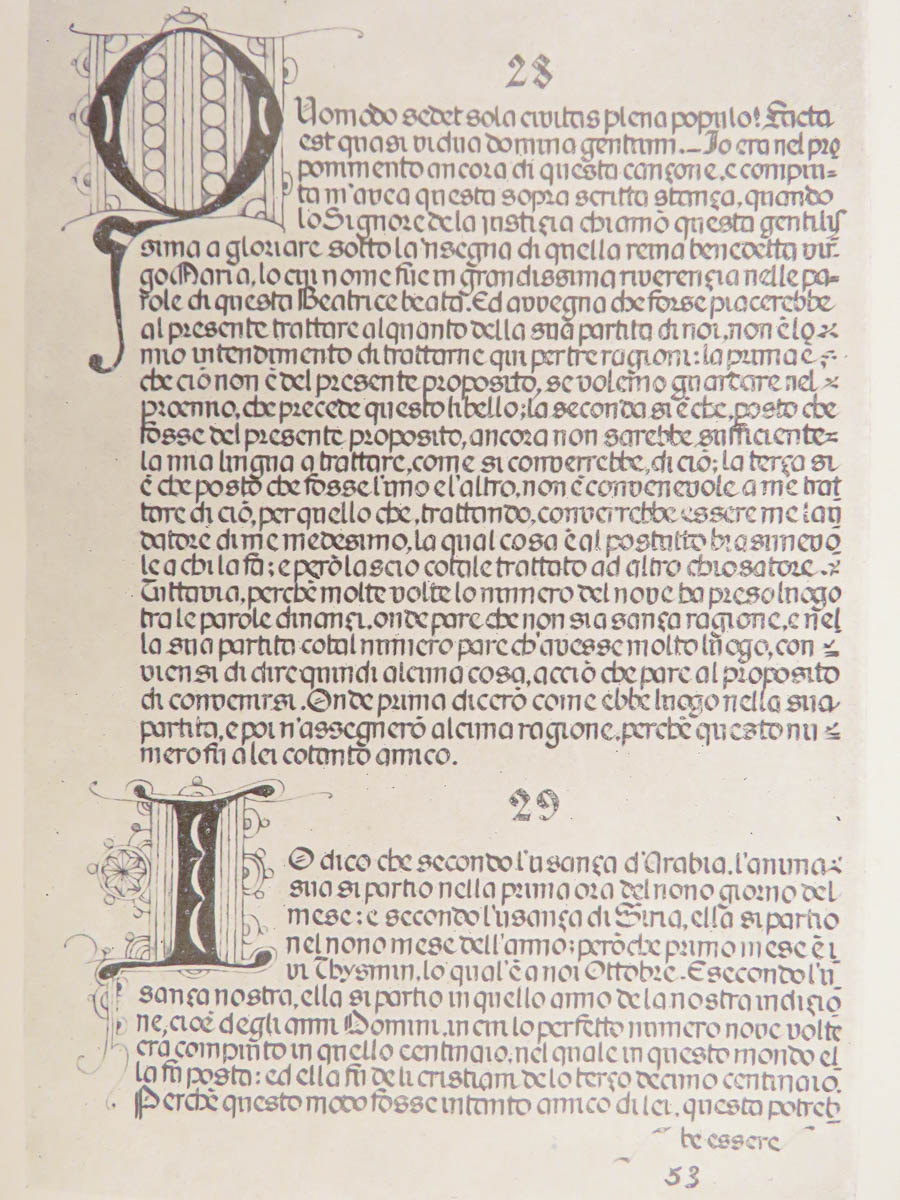 28
QUomodo sedet sola civitas plena populo! Facta
est quasi vidua domina gentium.—Io era nel pro
ponimento ancora di questa cançone, e compiu=
ta n'avea questa sopra scritta stança, quando
lo Signore de la justiçia chiamò questa gentilis
sima a gloriare sotto la 'nsegna di quella reina benedetta vir-
go Maria, lo cui nome fue in grandissima riverençia nelle pa=
role di questa Beatrice beata. Ed avvegna che forse piacerebbe
al presente trattare alquanto della sua partita di noi, non è lo
mio intendimento di trattarne qui per tre ragioni: la prima è,
che ciò non è del presente proposito, se volemo guardare nel
proemio, che precede questo libello; la seconda si è che, posto che
fosse del presente proposito, ancora non sarebbe sufficiente=
la mia lingua a trattare, come si converrebbe, di ciò; la terça si
è che posto che fosse l'uno e l'altro, non è convenevole a me trat
tare di ciò, per quello che, trattando, converrebbe essere me laū
datore di me medesimo, la qual cosa è al postutto biasimevo
le a chi la fa; e però lascio cotale trattato ad altro chiosatore.
Tuttavia, perchè molte volte lo numero del nove ha preso luogo
tra le parole dinançi, onde pare che non sia sança ragione, e nel
la sua partita cotal numero pare ch'avesse molto luogo, con
viensi di dire quindi alcuna cosa, acciò che pare al proposito
di convenirsi. Onde prima dicerò come ebbe luogo nella sua
partita, e poi n'assegnerò alcuna ragione, perchè questo nu
mero fu a lei cotanto amico.
29
IO dico che secondo l'usança d'Arabia, l'anima
sua si partio nella prima ora del nono giorno del
mese; e secondo l'usança di Siria, ella si partio
nel nono mese dell'anno; però che primo mese è i
vi Thysmin, lo qual'è a noi Ottobre. E secondo l'u
sança nostra, ella si partio in quello anno de la nostra indiçio
ne, cioè degli anni Domini, in cui lo perfetto numero nove volte
era compiuto in quello centinaio, nel quale in questo mondo el
la fu posta: ed ella fu de li cristiani de lo terço decimo centinaio.
Perchè questo modo fosse intanto amico di lei, questa potreb
be essere
53